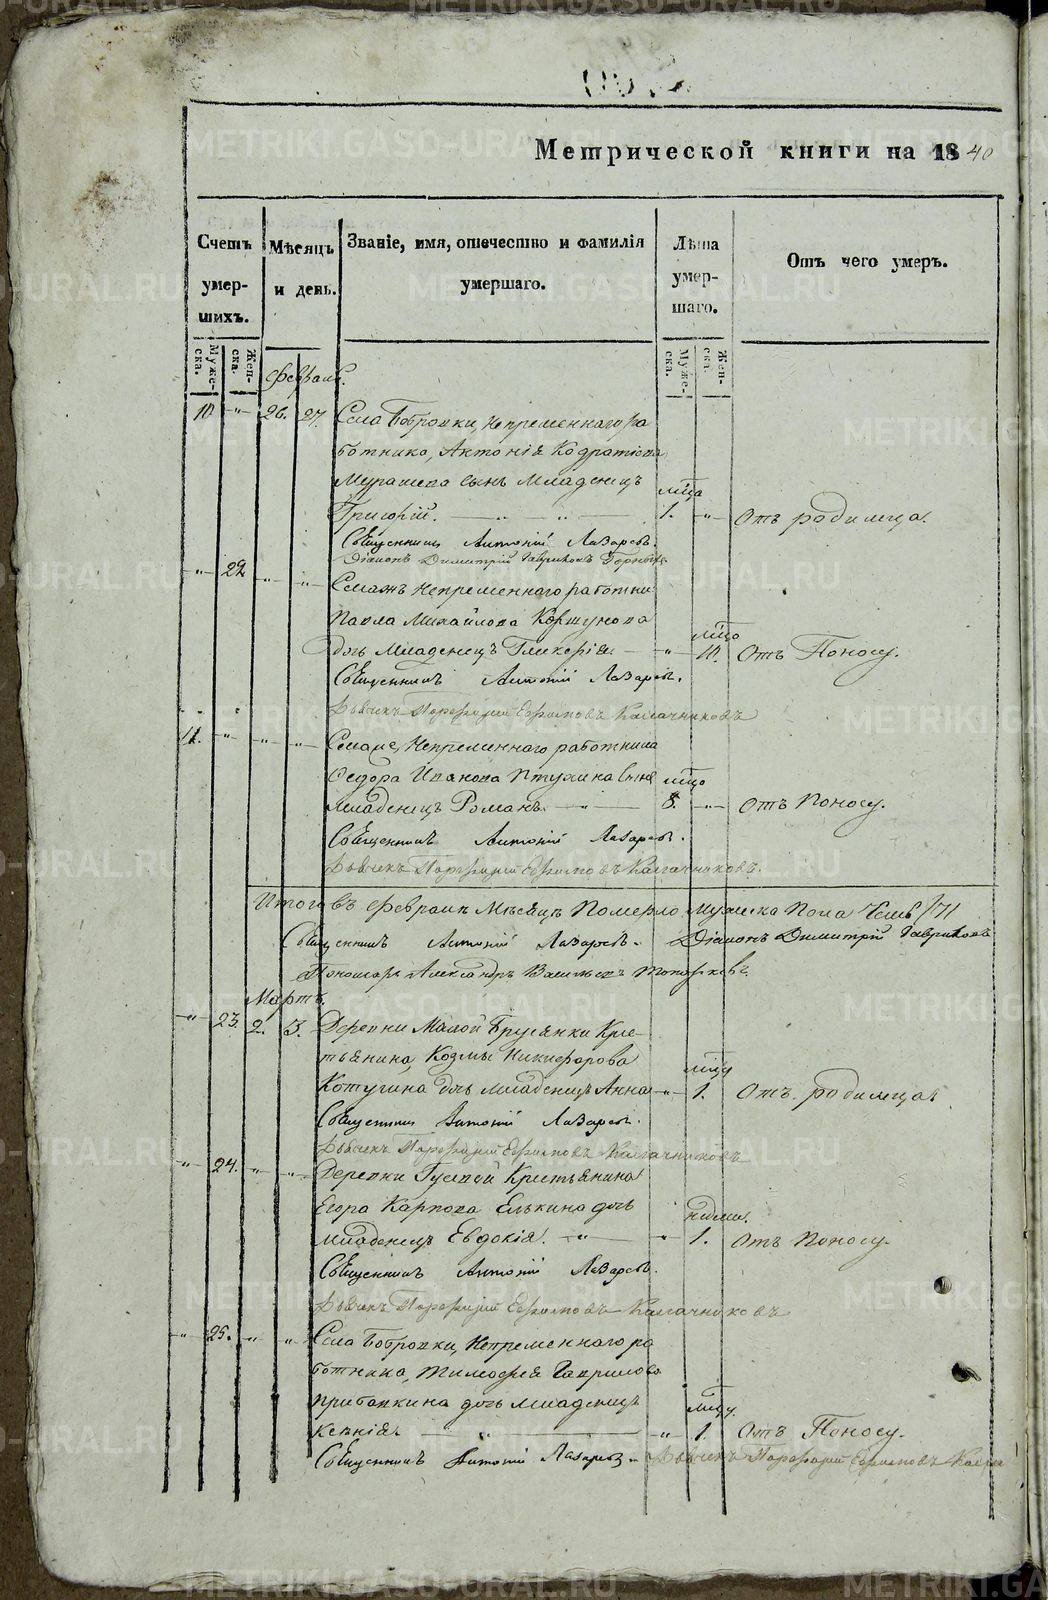 Метрической книги на 1840
Счетъ умершихъ.
Мужеска.
Женска.
Мѣсяцъ и день.
Званіе, имя, отечество и фамилія умершаго.
Лѣта умершаго.
Мужеска.
Женска.
Отъ чего умеръ.
Февраль.
10 " 26. 27. Села Бобровки, Непременнаго ра
ботника, Антонія Кодратіева
Мурашева сынъ Младенецъ
Григорій. 1. " Отъ родимца.
Священникъ Антоній Лазаревъ.
Діаконъ Димитрій Гавриловъ
" 22 " " Тогожъ Непременнаго работни
Павла Михайлова Коршунова
дочь Младенецъ Гликерія " 10. Отъ Поносу.
Священникъ Антоній Лазаревъ.
Дьячекъ Порфирій Ефимовъ Калачниковъ
11. " " " Непременнаго работника
Федора Иванова Птухина Сынъ
Младенецъ Романъ. 8. " Отъ Поносу.
Священникъ Антоній Лазаревъ.
Дьячекъ Порфирій Ефимовъ Калачниковъ.
Итого въ Февралѣ Мѣсяцѣ Померло Мужеска Пола
Священникъ Антоній Лазаревъ. Діаконъ Димитрій Гавриловъ
Пономарь Александръ Васильевъ Топорковъ
Мартъ.
" 23. 2. 3. Деревни Малой Брусянки Крес
тьянина, Козмы Никифорова
Котугина дочь младенецъ Анна " 1. Отъ родимца.
Священникъ Антоній Лазаревъ.
Дьячекъ Порфирій Ефимовъ Калачниковъ
" 24. " " Деревни Гусевой Крестьянина
Егора Карпова Елькина дочь
недели.
младенецъ Евдокія. " 1. Отъ Поносу.
Священникъ Антоній Лазаревъ.
Дьячекъ Порфирій Ефимовъ Калачниковъ
" 25. " " Села Бобровки, Непременнаго ра
ботника, Тимофея Гаврилова
Прибавкина дочь младенецъ
Ксенія " 1. Отъ Поносу.
Священникъ Антоній Лазаревъ. Дьячекъ Порфирій Ефимовъ
METRIKI.GASO-URAL.RU